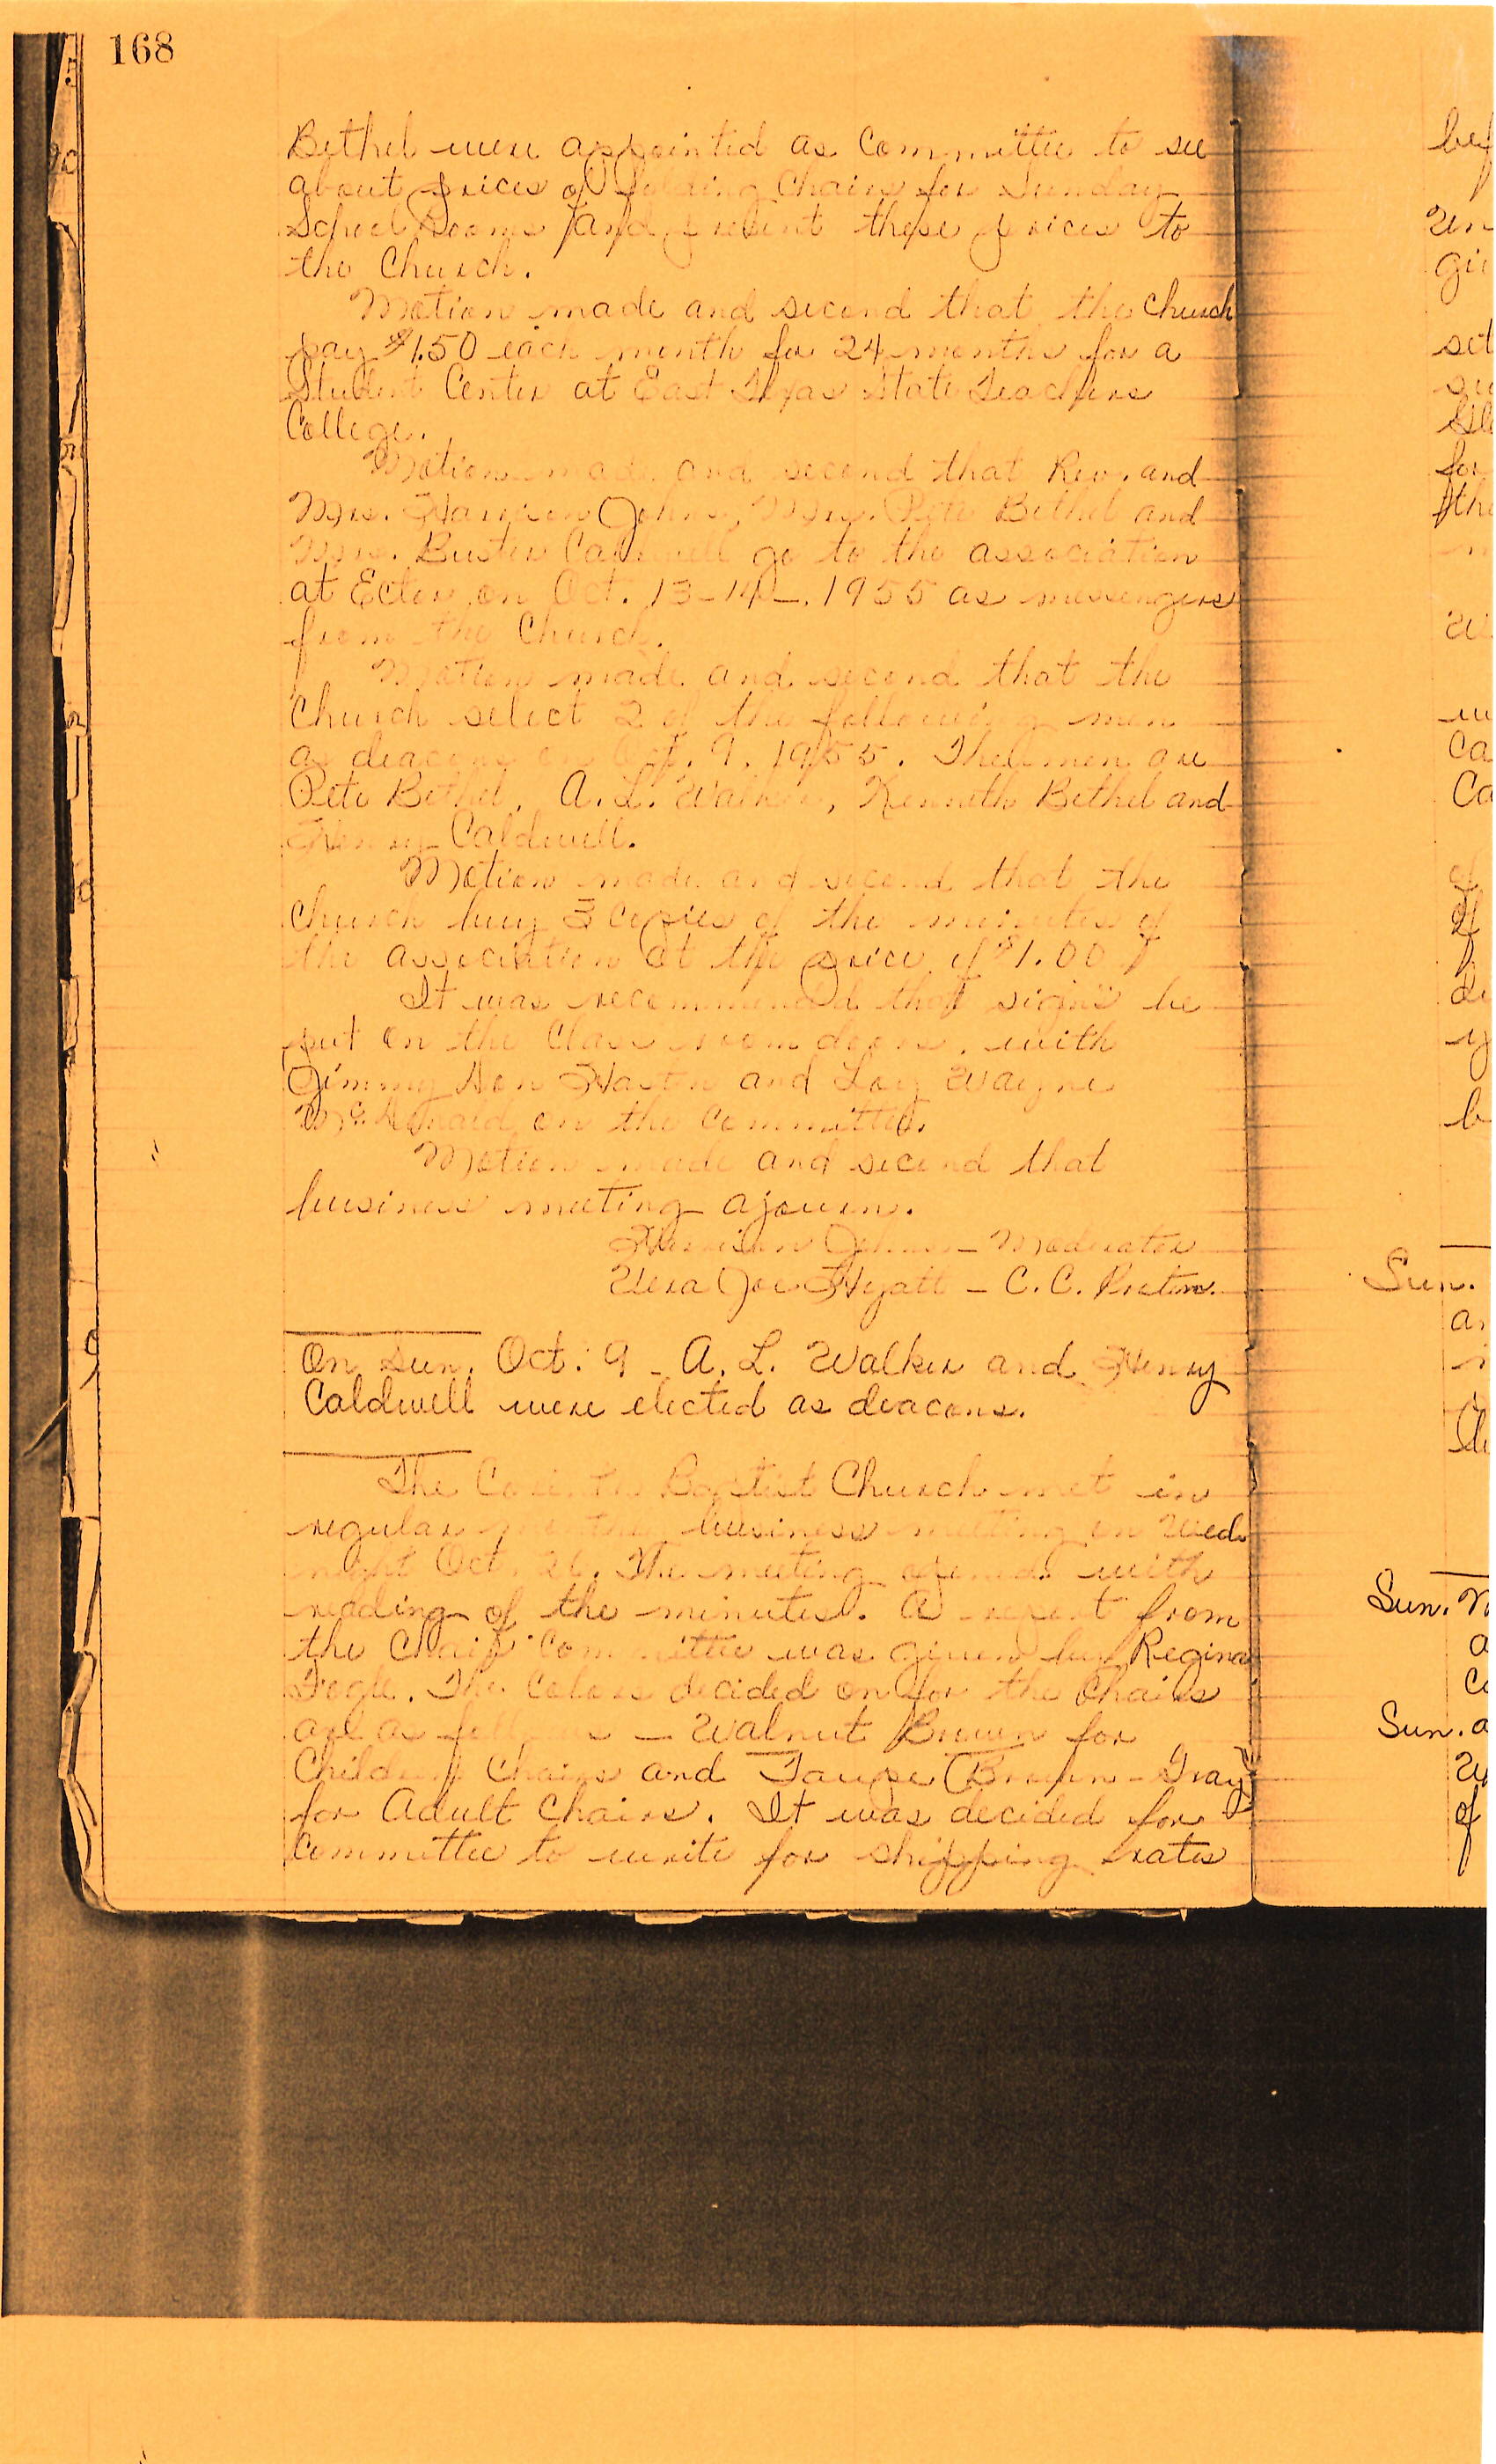 168
Bethel were appointed as Committee to see
about prices of folding Chairs for Sunday
School Rooms and present these prices to
the Church.
Motion made and second that the Church
pay $1.50 each month for 24 months for a
Student Center at East Texas State Teachers
College.
Motion made and second that Rev. and
Mrs. Harrison Johns, Mrs. Pete Bethel and
Mrs. Buster Caldwell go to the association
at Ector on Oct. 13-14-, 1955 as messengers
from the Church.
Motion made and second that the
Church select 2 of the following men
as deacons on Oct. 9, 1955. The men are
Pete Bethel, A. L. Walker, Kenneth Bethel and
Henry Caldwell.
Motion made and second that the
Church buy 3 Copies of the minutes of
the association at the price of $1.00
It was recommend that signs be
put on the Class room doors, with
Jimmy Don and Loy Wayne
McDonald on the Committee.
Motion made and second that
business meeting ajourn.
Harrison Johns - Moderator
Vera Joe Hyatt - C. C.
On Sun. Oct. 9 - A. L. Walker and Henry
Caldwell were elected as deacons.
The Baptist Church met in
regular business meeting on Wed.
night Oct. 26. The meeting opened with
reading of the minutes. A report from
the Chair Committee was given by Regina
Fogle. The Colors decided on for the Chairs
are as follows - Walnut Brown for
Children Chairs and Taupe (Brown-Gray)
for Adult Chairs. It was decided for
Committee to write for shipping rates
Sun.
Sun.
Sun.